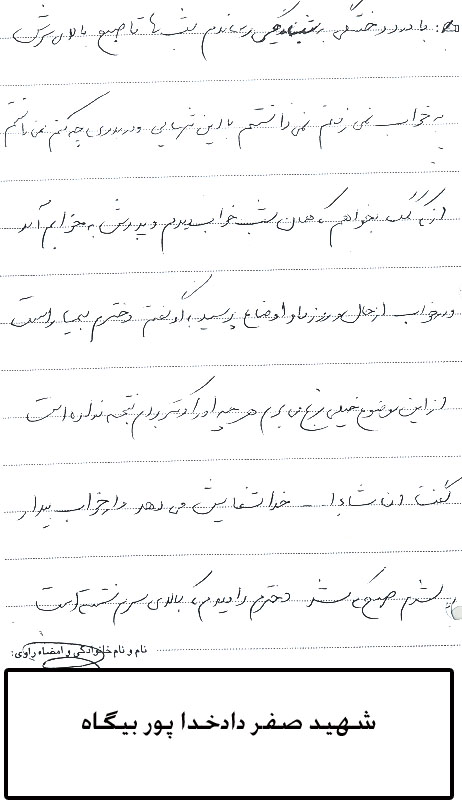 با درد و خستگی بسیار می رساندم شب ها تا صبح بالای سرش
به خواب نمی رفتم نمی دانستم با این تنهایی و دربدری چه کنم نمی دانستم
از که کمک بخواهم که همان شب خواب دیدم و پدرش به خوابم آمد
در خواب از حال و روز ما و اوضاع پرسید به او گفتم دخترم بیمار است
از این موضوع خیلی رنج می برم هر چه او را دکتر بردم نتیجه نداده است
گفت ان شاءا... خدا شفایش می دهد و از خواب بیدار
شدم صبح که شد دخترم را دیدم که بالای سرم نشسته است
نام و نام خانوادگی و امضاء راوی:
شهید صفر دادخدا پور بیگاه